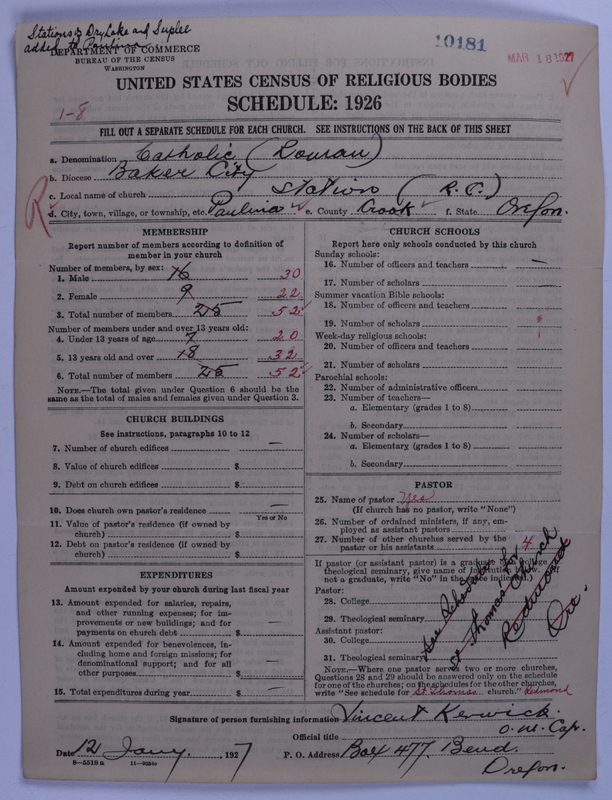 Stations of Dry Lake and Suplee
added to Paulina
DEPARTMENT OF COMMERCE
BUREAU OF THE CENSUS
WASHINGTON
10181
MAR 18 1927
UNITED STATES CENSUS OF RELIGIOUS BODIES
SCHEDULE: 1926
1-8
FILL OUT A SEPARATE SCHEDULE FOR EACH CHURCH. SEE INSTRUCTIONS ON THE BACK OF THIS SHEET
a. Denomination Catholic (Roman)
b. Diocese Baker City
c. Local name of church Station (R.C.)
d. City, town, village, or township, etc. Paulina e. County Crook f. State Oregon.
MEMBERSHIP
Report number of members according to definition of
member in your church
Number of members, by sex:
1. Male 16 30
2. Female 9 22
3. Total number of members 25 52
Number of members under and over 13 years old:
4. Under 13 years of age 7 20
5. 13 years old and over 18 32
6. Total number of members 25 52
NOTE.—The total given under Question 6 should be
same as the total of males and females given under Question 3.
CHURCH BUILDINGS
See instructions, paragraphs 10 to 12
7. Number of church edifices —
8. Value of church edifices $
9. Debt on church edifices $
10. Does church own pastor's residence —
Yes or No
11. Value of pastor's residence (if owned by
church) $
12. Debt on pastor's residence (if owned by
church) $
EXPENDITURES
Amount expended by your church during last fiscal year
13. Amount expended for salaries, repairs,
and other running expenses; for im-
provements or new buildings; and for
payments on church debt $ —
14. Amount expended for benevolences, in-
cluding home and foreign missions; for
denominational support; and for all
other purposes $ —
15. Total expenditures during year $
CHURCH SCHOOLS
Report here only schools conducted by this church
Sunday schools:
16. Number of officers and teachers —
17. Number of scholars
Summer vacation Bible schools:
18. Number of officers and teachers
19. Number of scholars
Week-day religious schools:
20. Number of officers and teachers
21. Number of scholars
Parochial schools:
22. Number of administrative officers
23. Number of teachers—
a. Elementary (grades 1 to 8)
b. Secondary
24. Number of scholars—
a. Elementary (grades 1 to 8)
b. Secondary
PASTOR
25. Name of pastor Yes
(If church has no pastor, write "None")
26. Number of ordained ministers, if any, em-
ployed as assistant pastors
27. Number of other churches served by the
pastor or his assistants 4
If pastor (or assistant pastor) is a graduate of college
theological seminary, give name of institution below.
not a graduate, write "No" in the space indicated.)
Pastor:
28. College
29. Theological seminary
Assistant pastor:
30. College
31. Theological seminary
See Schedule for
St Thomas Church
Redmond
Ore.
NOTE.—Where one pastor serves two or more churches,
Questions 28 and 29 should be answered only on the schedule
for one of the churches; on the schedules for the other churches,
write "See schedule for St. Thomas church." Redmond
Signature of person furnishing information Vincent Kerwick.
Official title O. M. Cap.
Date 12 Jany. 1927
P. O. Address Box 477. Bend.
Oregon.
8-5518 a